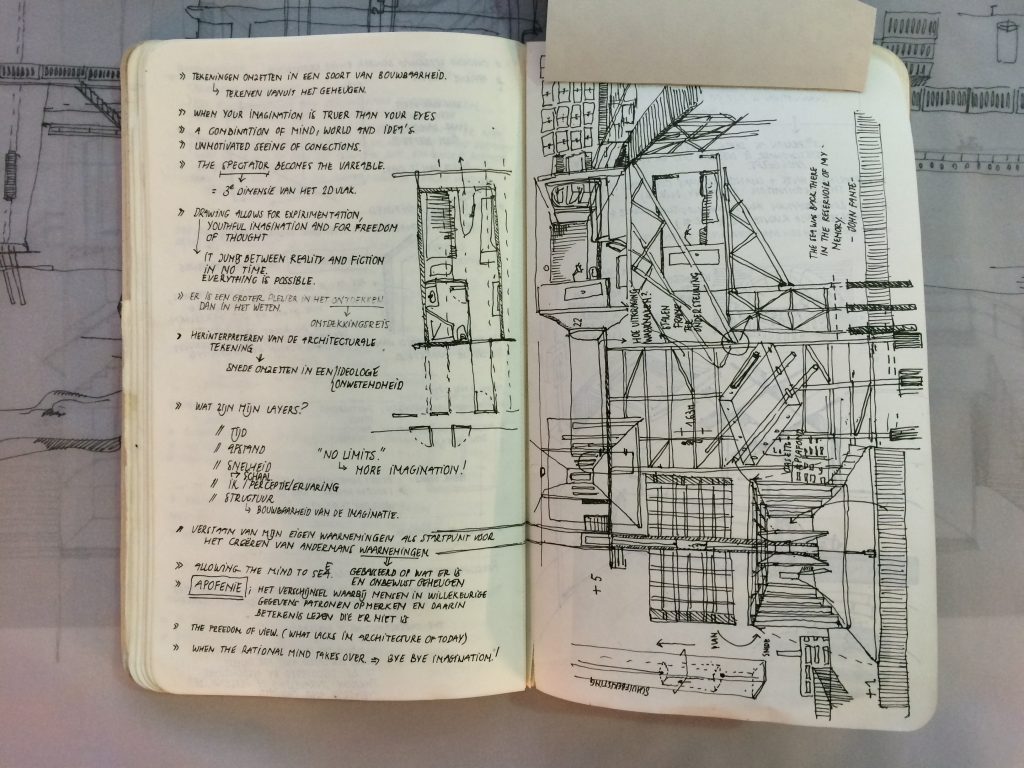 » TEKENINGEN OMZETTEN IN EEN SOORT VAN BOUWBAARHEID.
↳ TEKENEN VANUIT HET GEHEUGEN.
» WHEN YOUR IMAGINATION IS TRUER THAN YOUR EYES
» A COMBINATION OF MIND, WORLD AND IDEA'S.
» UNMOTIVATED SEEING OF CONECTIONS.
» THE SPECTATOR BECOMES THE VAREABLE.
= 3e DIMENSIE VAN HET 2D VLAK.
» DRAWING ALLOWS FOR EXPIRIMENTATION,
YOUTHFUL IMAGINATION AND FOR FREEDOM
OF THOUGHT
IT JUMPS BETWEEN REALITY AND FICTION
IN NO TIME.
EVERYTHING IS POSSIBLE.
» ER IS EEN GROTER PLEZIER IN HET ONTDEKKEN
DAN IN HET WETEN.
ONTDEKKINGSREIS
» HERINTERPRETEREN VAN DE ARCHITECTURALE
TEKENING
SNEDE OMZETTEN IN EEN IDEOLOGIE
ONWETENDHEID
» WAT ZIJN MIJN LAYERS?
// TIJD
// AFSTAND
// SNELHEID
↳ SCHAAL
// IK / PERCEPTIE/ERVARING
// STRUCTUUR
↳ BOUWBAARHEID VAN DE IMAGINATIE.
"NO LIMITS."
↳ MORE IMAGINATION!
» VERSTAAN VAN MIJN EIGEN WAARNEMINGEN ALS STARTPUNT VOOR
HET CREËREN VAN ANDERMANS WAARNEMINGEN
» ALLOWING THE MIND TO SEE.
GEBASEERD OP WAT ER IS
EN ONBEWUST GEHEUGEN
» APOFENIE ; HET VERSCHIJNSEL WAARBIJ MENSEN IN WILLEKEURIGE
GEGEVENS PATRONEN OPMERKEN EN DAARIN
BETEKENIS LEZEN DIE ER NIET IS
» THE FREEDOM OF VIEW. (WHAT LACKS IN ARCHITECTURE OF TODAY)
» WHEN THE RATIONAL MIND TAKES OVER ⇒ BYE BYE IMAGINATION!
THE SEA WAS BACK THERE
IN THE RESERVOIR OF MY
MEMORY.
- JOHN FANTE -
HOE UITKRAGING
WAARMAKEN?
STALEN
ONDERSTEUNING
22
1.63m
+5
PLAN
SNEDE
+2